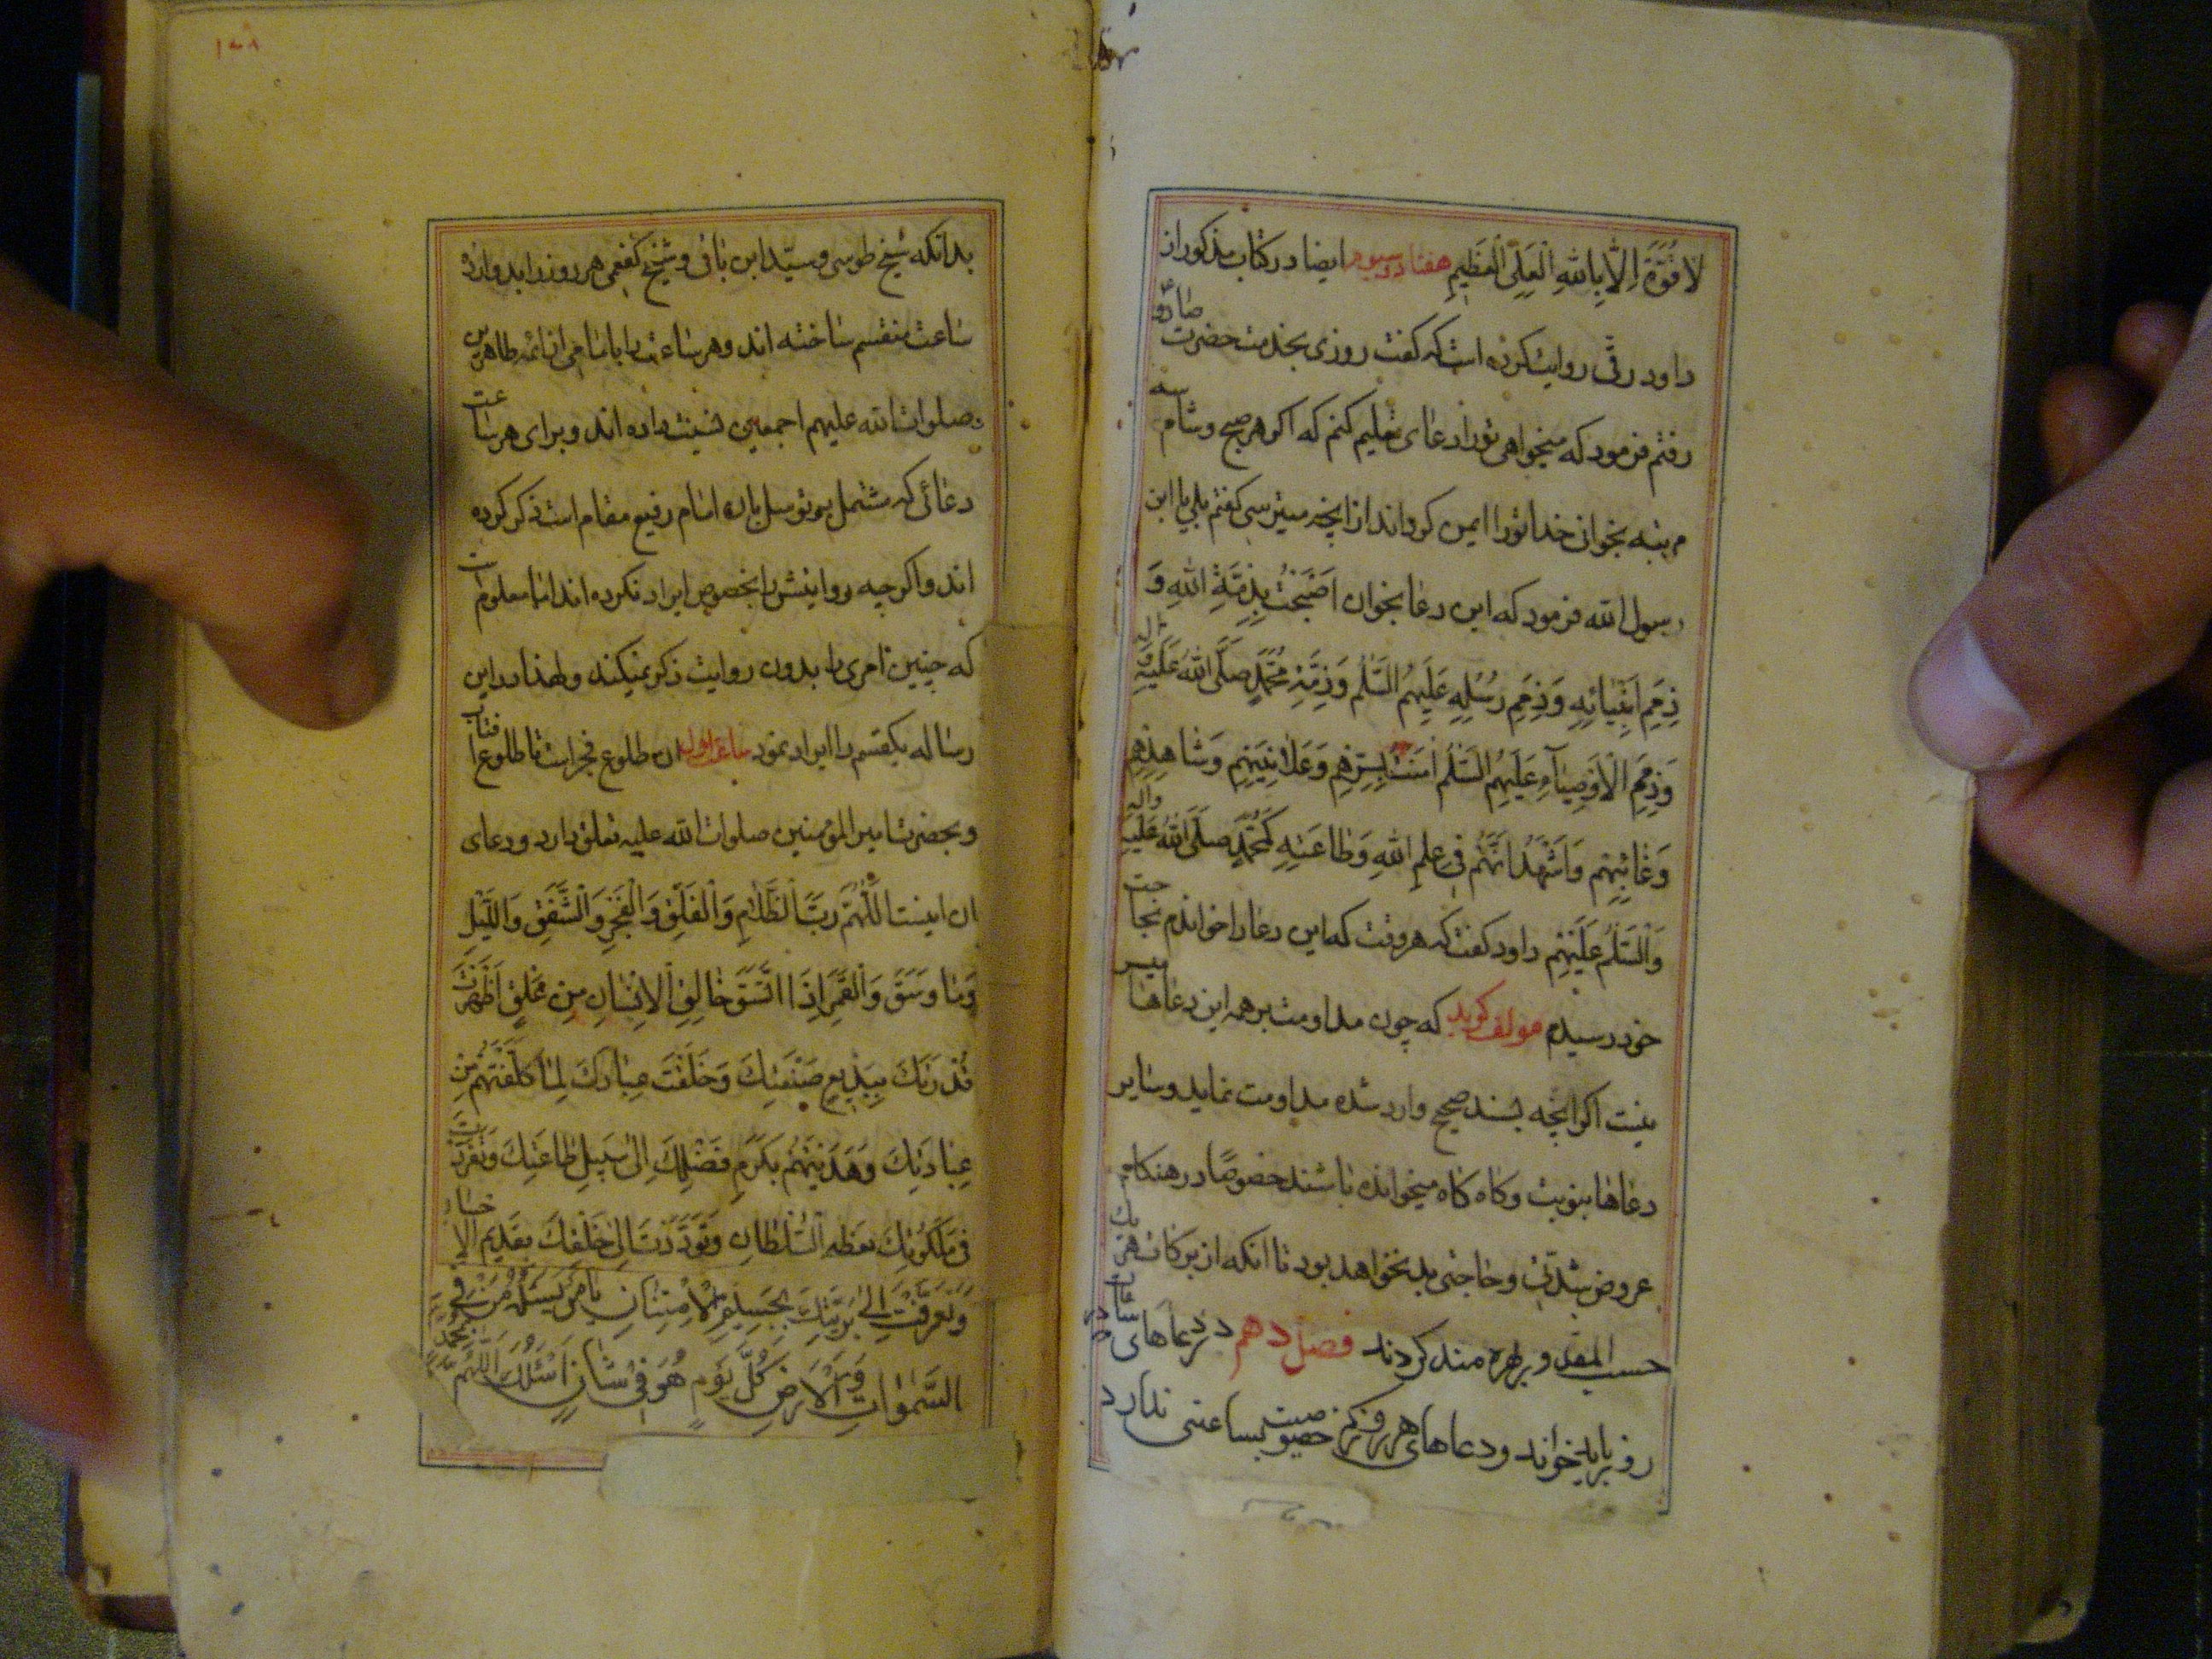 لا قُوَّةَ اِلّا بِاللهِ الْعَلِیِّ الْعَظِیمِ هفتاد و سیوم ایضا در کتاب مذکور از
داود رقّی روایت کرده است که گفت روزی بخدمت حضرت صادق
رفتم فرمود که میخواهی تورا دعای تعلیم کنم که اگر هر صبح و شام سه
مرتبه بخوانی خدا تورا ایمن گرداند از آنچه میترسی گفتم بلی یا ابن
رسول الله فرمود که این دعا بخوان اَصْبَحْتُ بِذِمَّةِ اللهِ وَ
ذِمَمِ اَنْبِیائِهِ وَ ذِمَمِ رُسُلِهِ عَلَیْهِمُ السَّلٰمُ وَ ذِمَّةِ مُحَمَّدٍ صَلَّی اللهُ عَلَیْهِ وَ آلِهِ
وَ ذِمَمِ الْاَوْصِیآءِ عَلَیْهِمُ السَّلٰمُ اٰمَنْتُ بِسِرِّهِمْ وَ عَلانِیَتِهِمْ وَ شاهِدِهِمْ
وَ غائِبِهِمْ وَ اَشْهَدُ اَنَّهُمْ فی عِلْمِ اللهِ وَ طاعَتِهِ کَمُحَمَّدٍ صَلَّی اللهُ عَلَیْهِ وَ آلِهِ
وَالسَّلٰمُ عَلَیْهِمْ داود گفت که هر وقت که این دعا را خواندم بحاجت
خود رسیدم مولف گوید که چون مداومت بر همه این دعاها میسر
نیست اگر آنچه بسند صحیح وارد شده مداومت نماید و سایر
دعاها بنوبت و گاه گاه میخوانده باشند خصوصًا در هنگام
عروض شدتی و حاجتی بد نخواهد بود تا آنکه از برکات هر یک
حسب المقدور بهره مند گردند فصل دهم در دعاهای ساعات
روز باید خواند و دعاهای هر روز که خصوصیت بساعتی ندارد
۱۰۸
بدانکه شیخ طوسی و سیّد ابن باقی و شیخ کفعمی هر روز را بدوازده
ساعت منقسم ساخته اند و هر ساعت را بامامی از ائمه طاهرین
صلوات الله علیهم اجمعین نسبت داده اند و برای هر ساعت
دعائی که مشتمل بر توسل بان امام رفیع مقام است ذکر کرده
اند و اگرچه روایتش را بخصوص ایراد نکرده اند اما معلوم است
که چنین امری را بدون روایت ذکر نمیکنند و لهذا در این
رساله یکقسم را ایراد نمود ساعت اول از طلوع فجر است تا طلوع آفتاب
و بحضرت امیر المؤمنین صلوات الله علیه تعلق دارد و دعای
ان اینست اَللّٰهُمَّ رَبَّ الظَّلامِ وَالْفَلَقِ وَالْفَجْرِ وَالشَّفَقِ وَاللَّیْلِ
وَما وَسَقَ وَالْقَمَرِ اِذَا اتَّسَقَ خالِقِ الْاِنْسانِ مِنْ عَلَقٍ اَظْهَرْتَ
قُدْرَتَکَ بِبَدیعِ صَنْعَتِکَ وَ خَلَقْتَ عِبادَکَ لِما کَلَّفْتَهُمْ مِنْ
عِبادَتِکَ وَ هَدَیْتَهُمْ بِکَرَمِ فَضْلِکَ اِلی سَبیلِ طاعَتِکَ وَ تَفَرَّدْتَ
فی مَلَکُوتِکَ بِعَظیمِ السُّلْطانِ وَ تَوَدَّدْتَ اِلی خَلْقِکَ بِقَدیمِ الْاِحْسانِ
وَ تَعَرَّفْتَ اِلی بَرِیَّتِکَ بِجَسیمِ الْاِمْتِنانِ یا مَنْ یَسْئَلُهُ مَنْ فِی
السَّمٰواتِ وَالْاَرْضِ کُلَّ یَوْمٍ هُوَ فی شَاْنٍ اَسْئَلُکَ اللّٰهُمَّ بِمُحَمَّدٍ